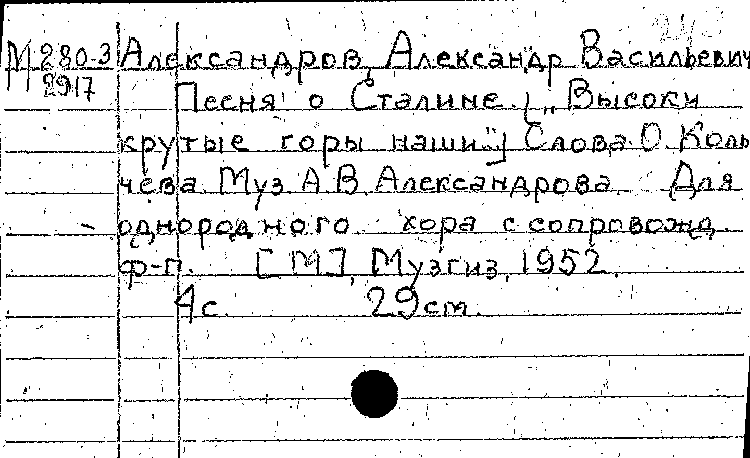 М 280-3 Александров, Александр Васильевич
2917
Песня о Сталине. [„Высоки
крутые горы наши"] Слова О. Колы
чева. Муз. А. В. Александрова. Для
однородного хора с сопровожд.
ф-п. [М], Музгиз, 1952.
4 с. 29 см.